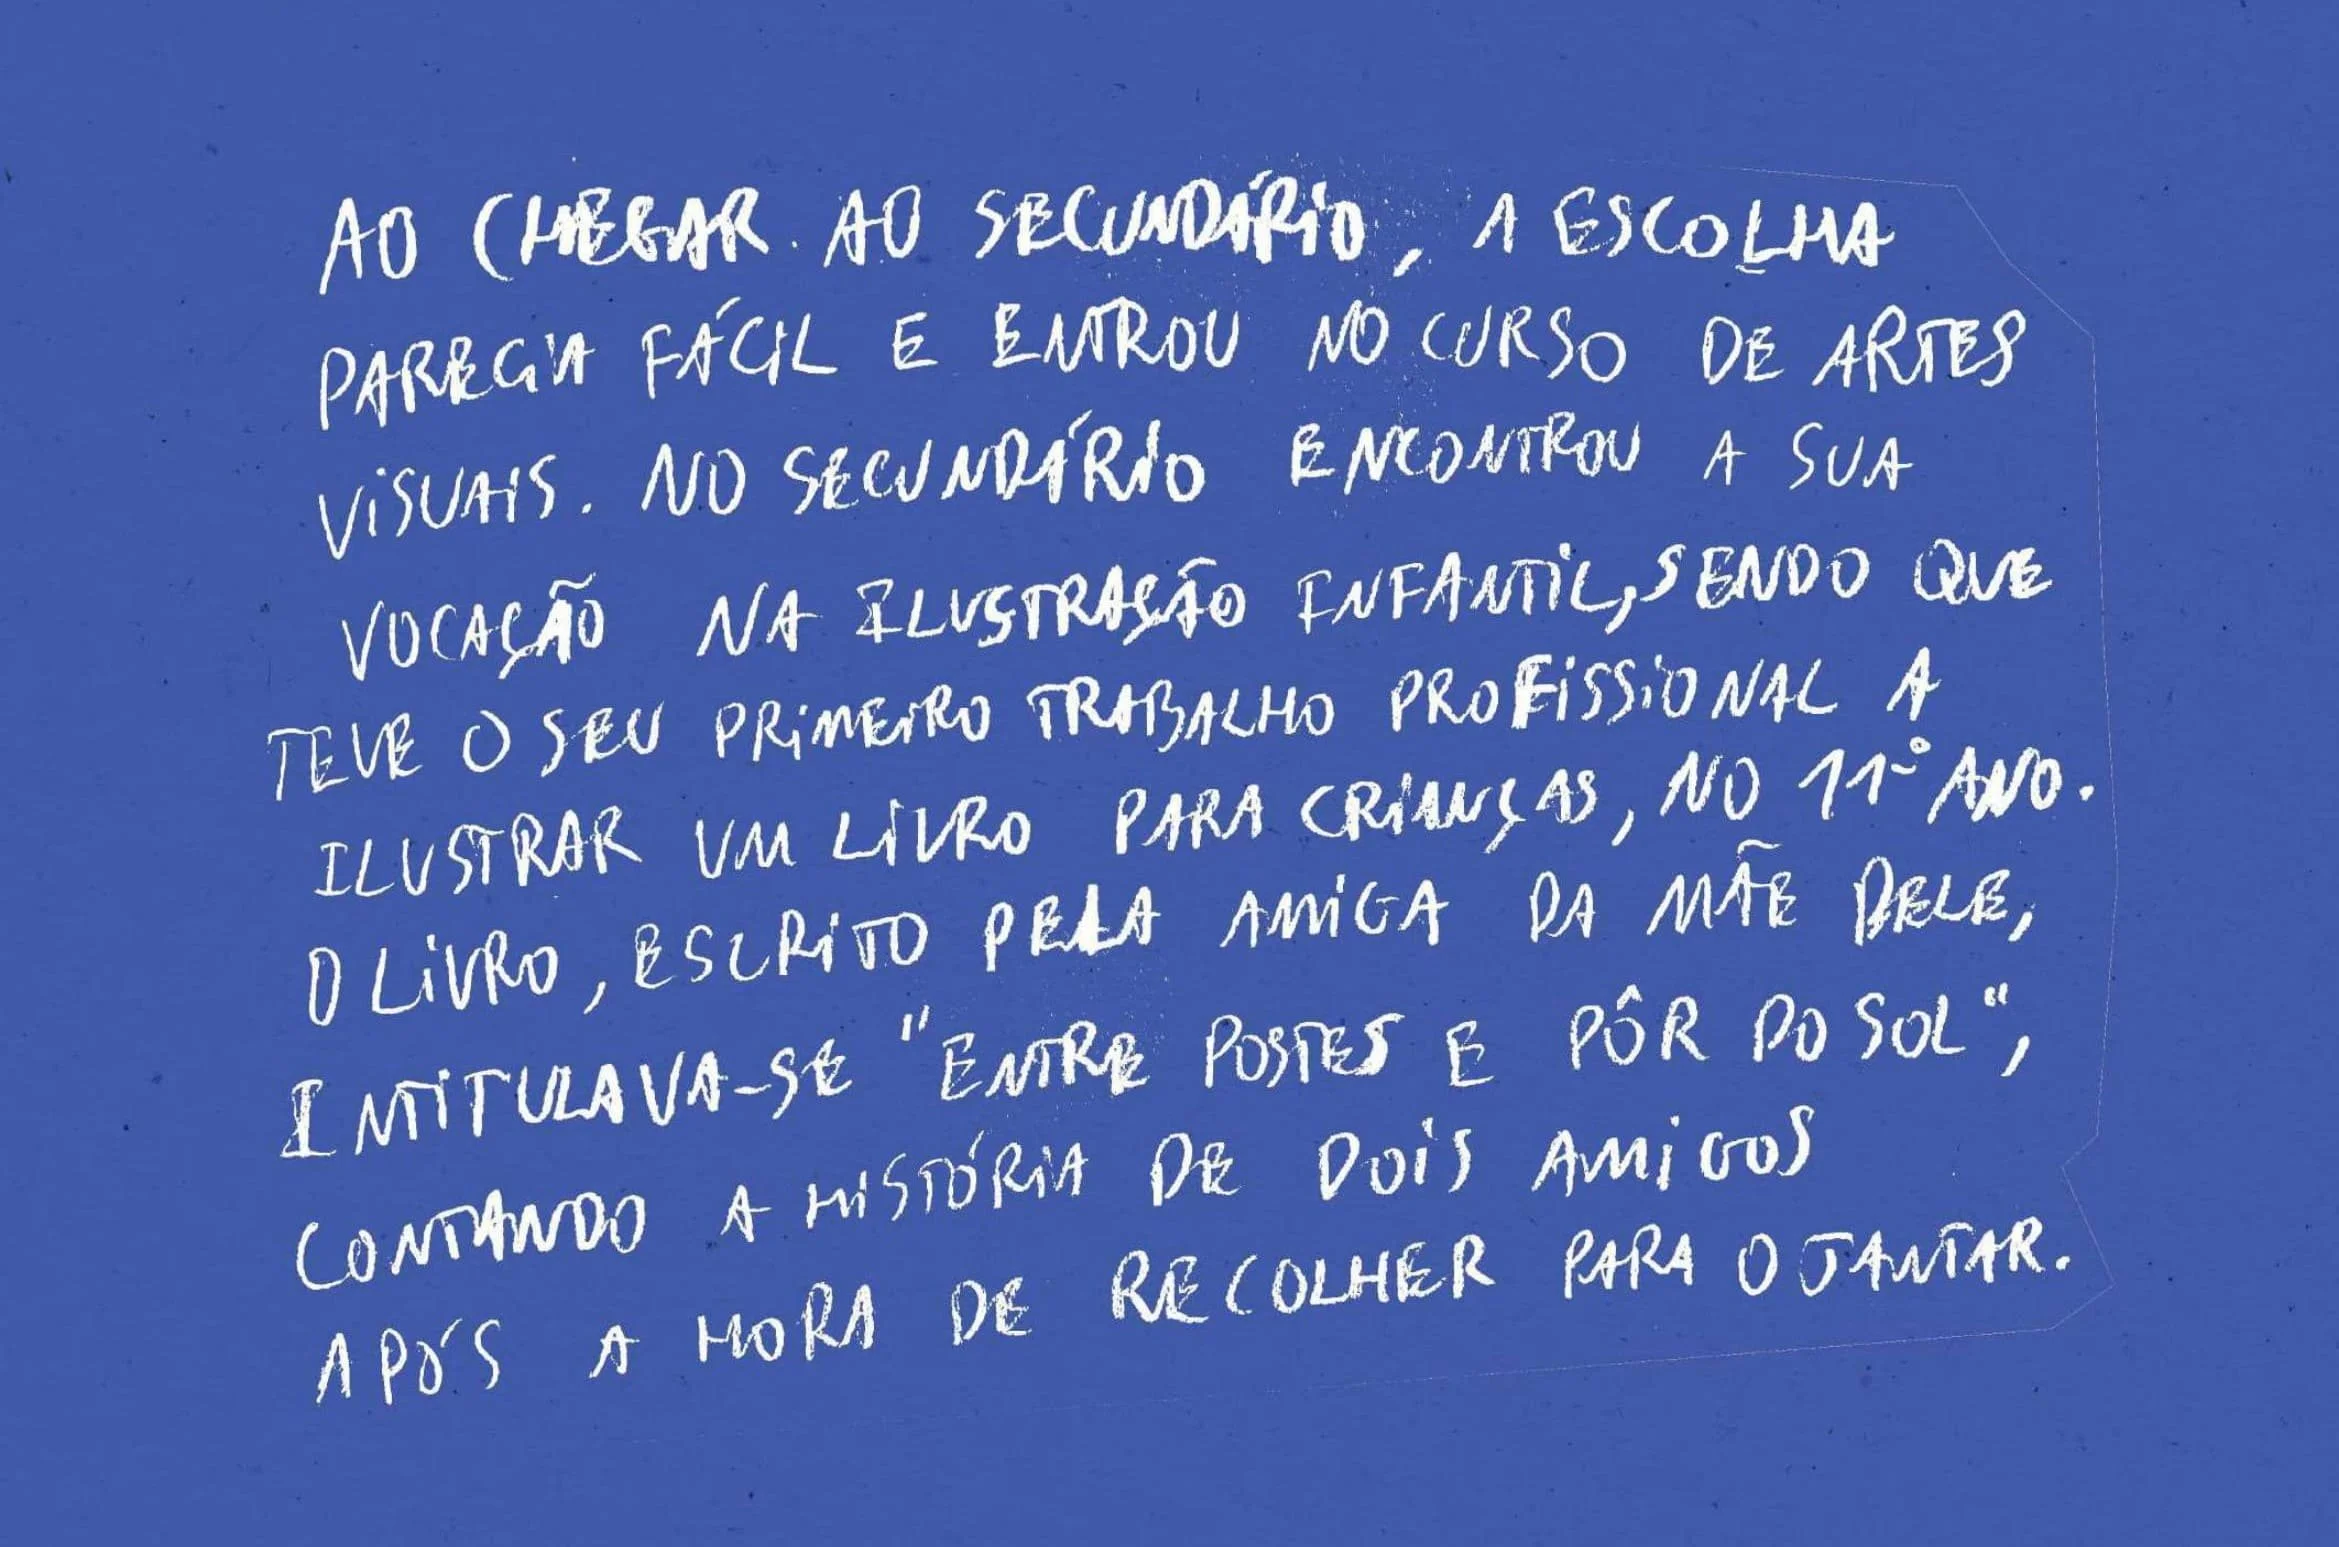 AO CHEGAR AO SECUNDÁRIO, A ESCOLHA
PARECIA FÁCIL E ENTROU NO CURSO DE ARTES
VISUAIS. NO SECUNDÁRIO ENCONTROU A SUA
VOCAÇÃO NA ILUSTRAÇÃO INFANTIL, SENDO QUE
TEVE O SEU PRIMEIRO TRABALHO PROFISSIONAL A
ILUSTRAR UM LIVRO PARA CRIANÇAS, NO 11º ANO.
O LIVRO, ESCRITO PELA AMIGA DA MÃE DELE,
INTITULAVA-SE "ENTRE POSTES E PÔR DO SOL",
CONTANDO A HISTÓRIA DE DOIS AMIGOS
APÓS A HORA DE RECOLHER PARA O JANTAR.